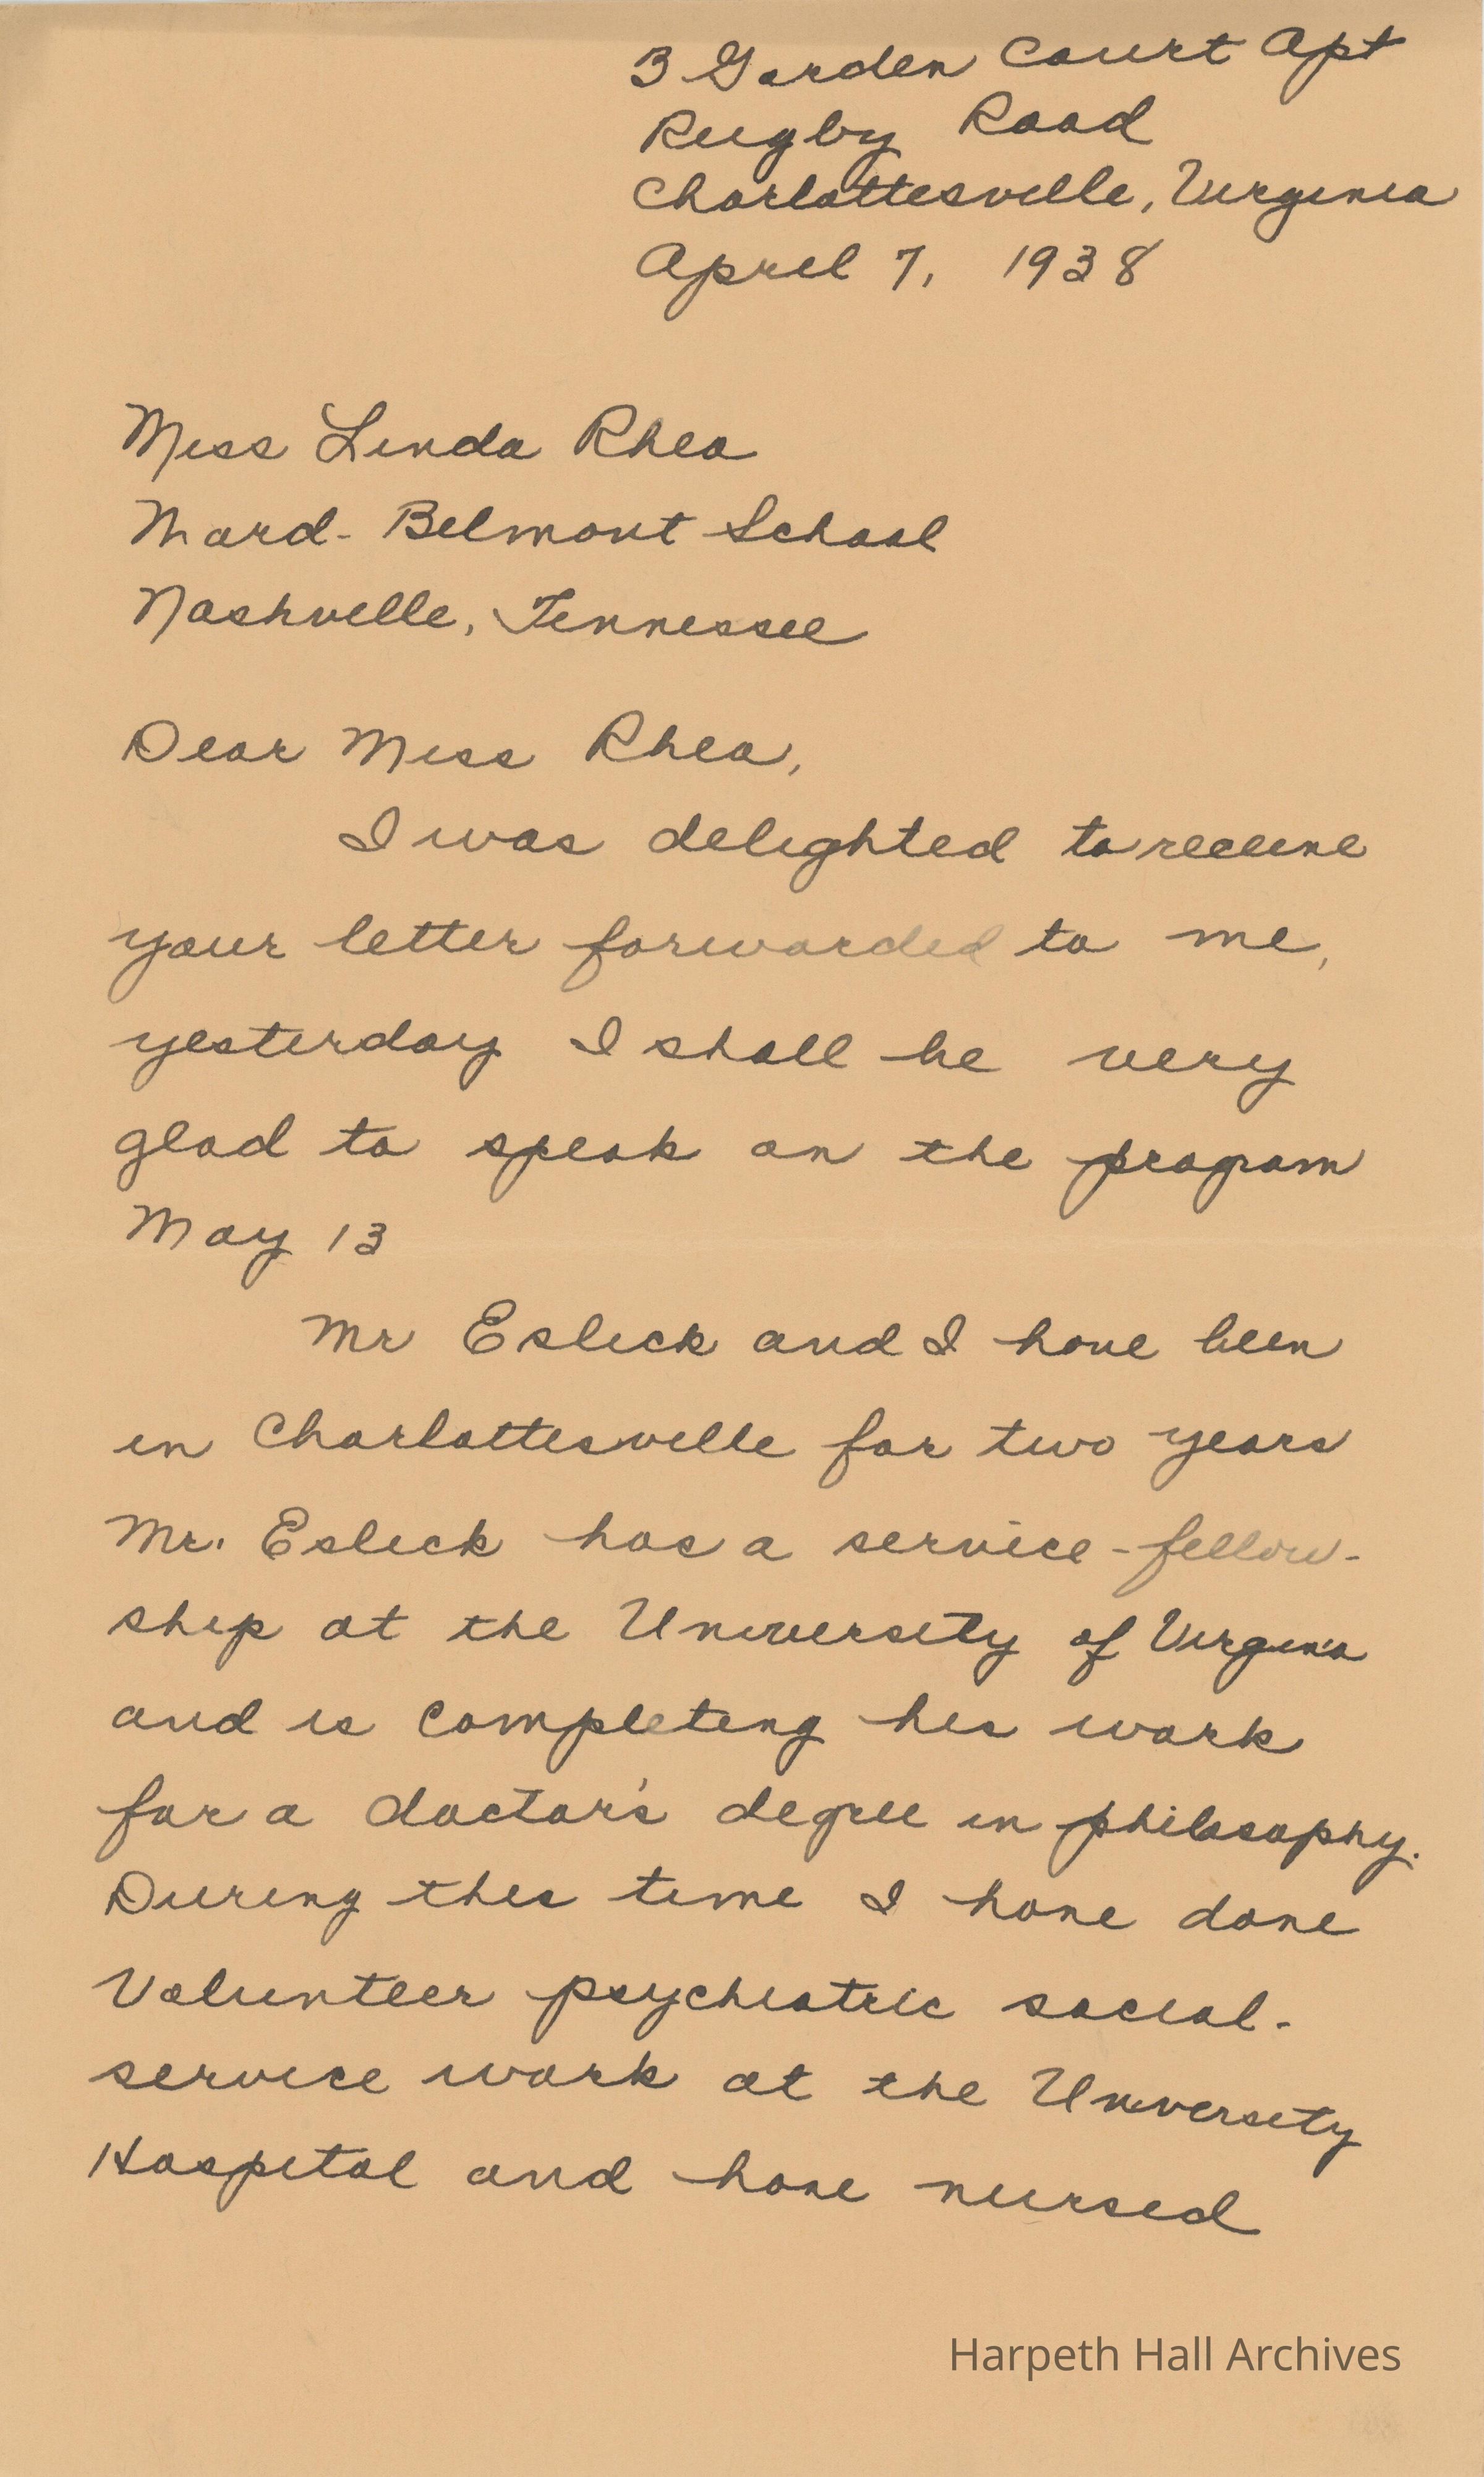 3 Garden Court Apt
Rugby Road
Charlottesville, Virginia
April 7, 1938
Miss Linda Rhea
Ward-Belmont School
Nashville, Tennessee
Dear Miss Rhea,
I was delighted to receive
your letter forwarded to me,
yesterday I shall be very
glad to speak on the program
May 13
Mr Eslick and I have been
in Charlottesville for two years
Mr. Eslick has a service-fellow-
ship at the University of Virginia
and is completing his work
for a doctor's degree in philosophy.
During this time I have done
Volunteer psychiatric social-
service work at the University
Hospital and have nursed
Harpeth Hall Archives